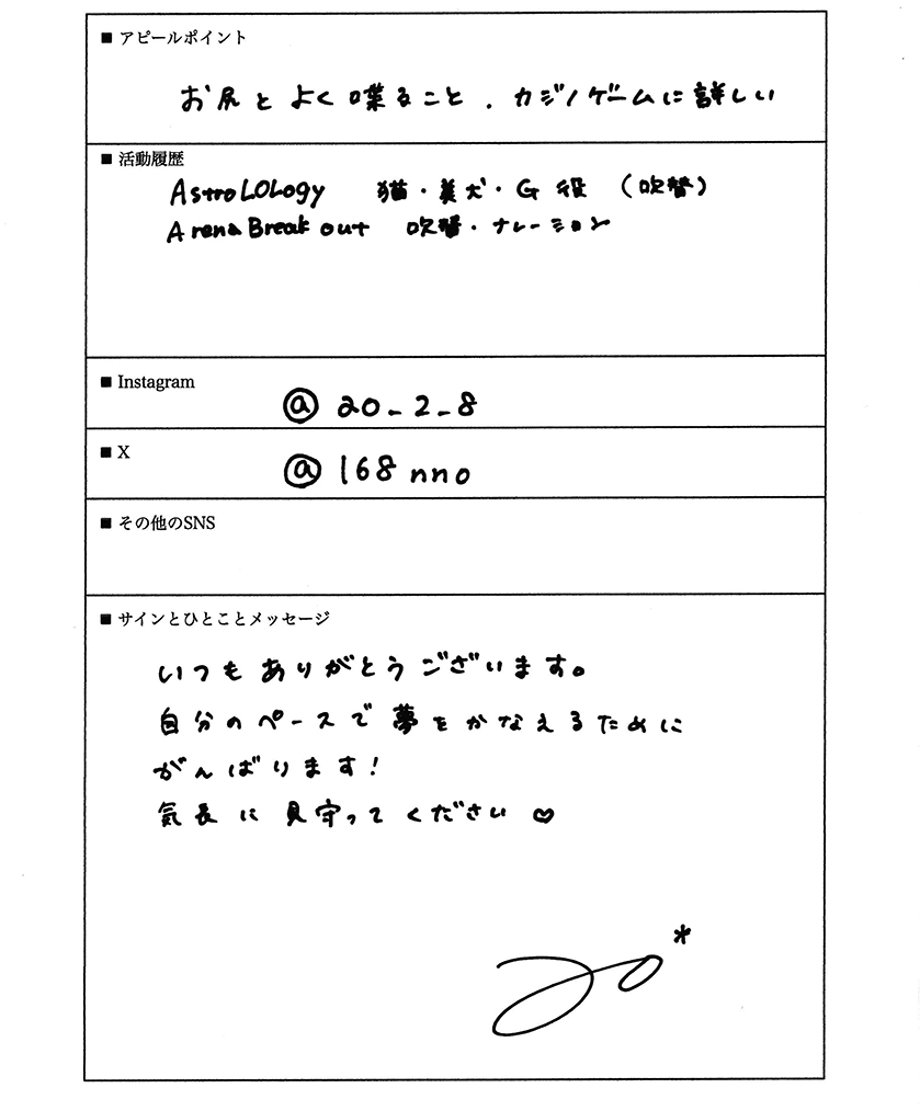 ■ アピールポイント
お尻とよく喋ること、カジノゲームに詳しい
■ 活動履歴
AstroLOLogy 猫・美犬・G役 (吹替)
Arena Breakout 吹替・ナレーション
■ Instagram
@20_2_8
■ X
@168nno
■ その他のSNS
■ サインとひとことメッセージ
いつもありがとうございます。
自分のペースで夢をかなえるために
がんばります!
気長に見守ってください♡